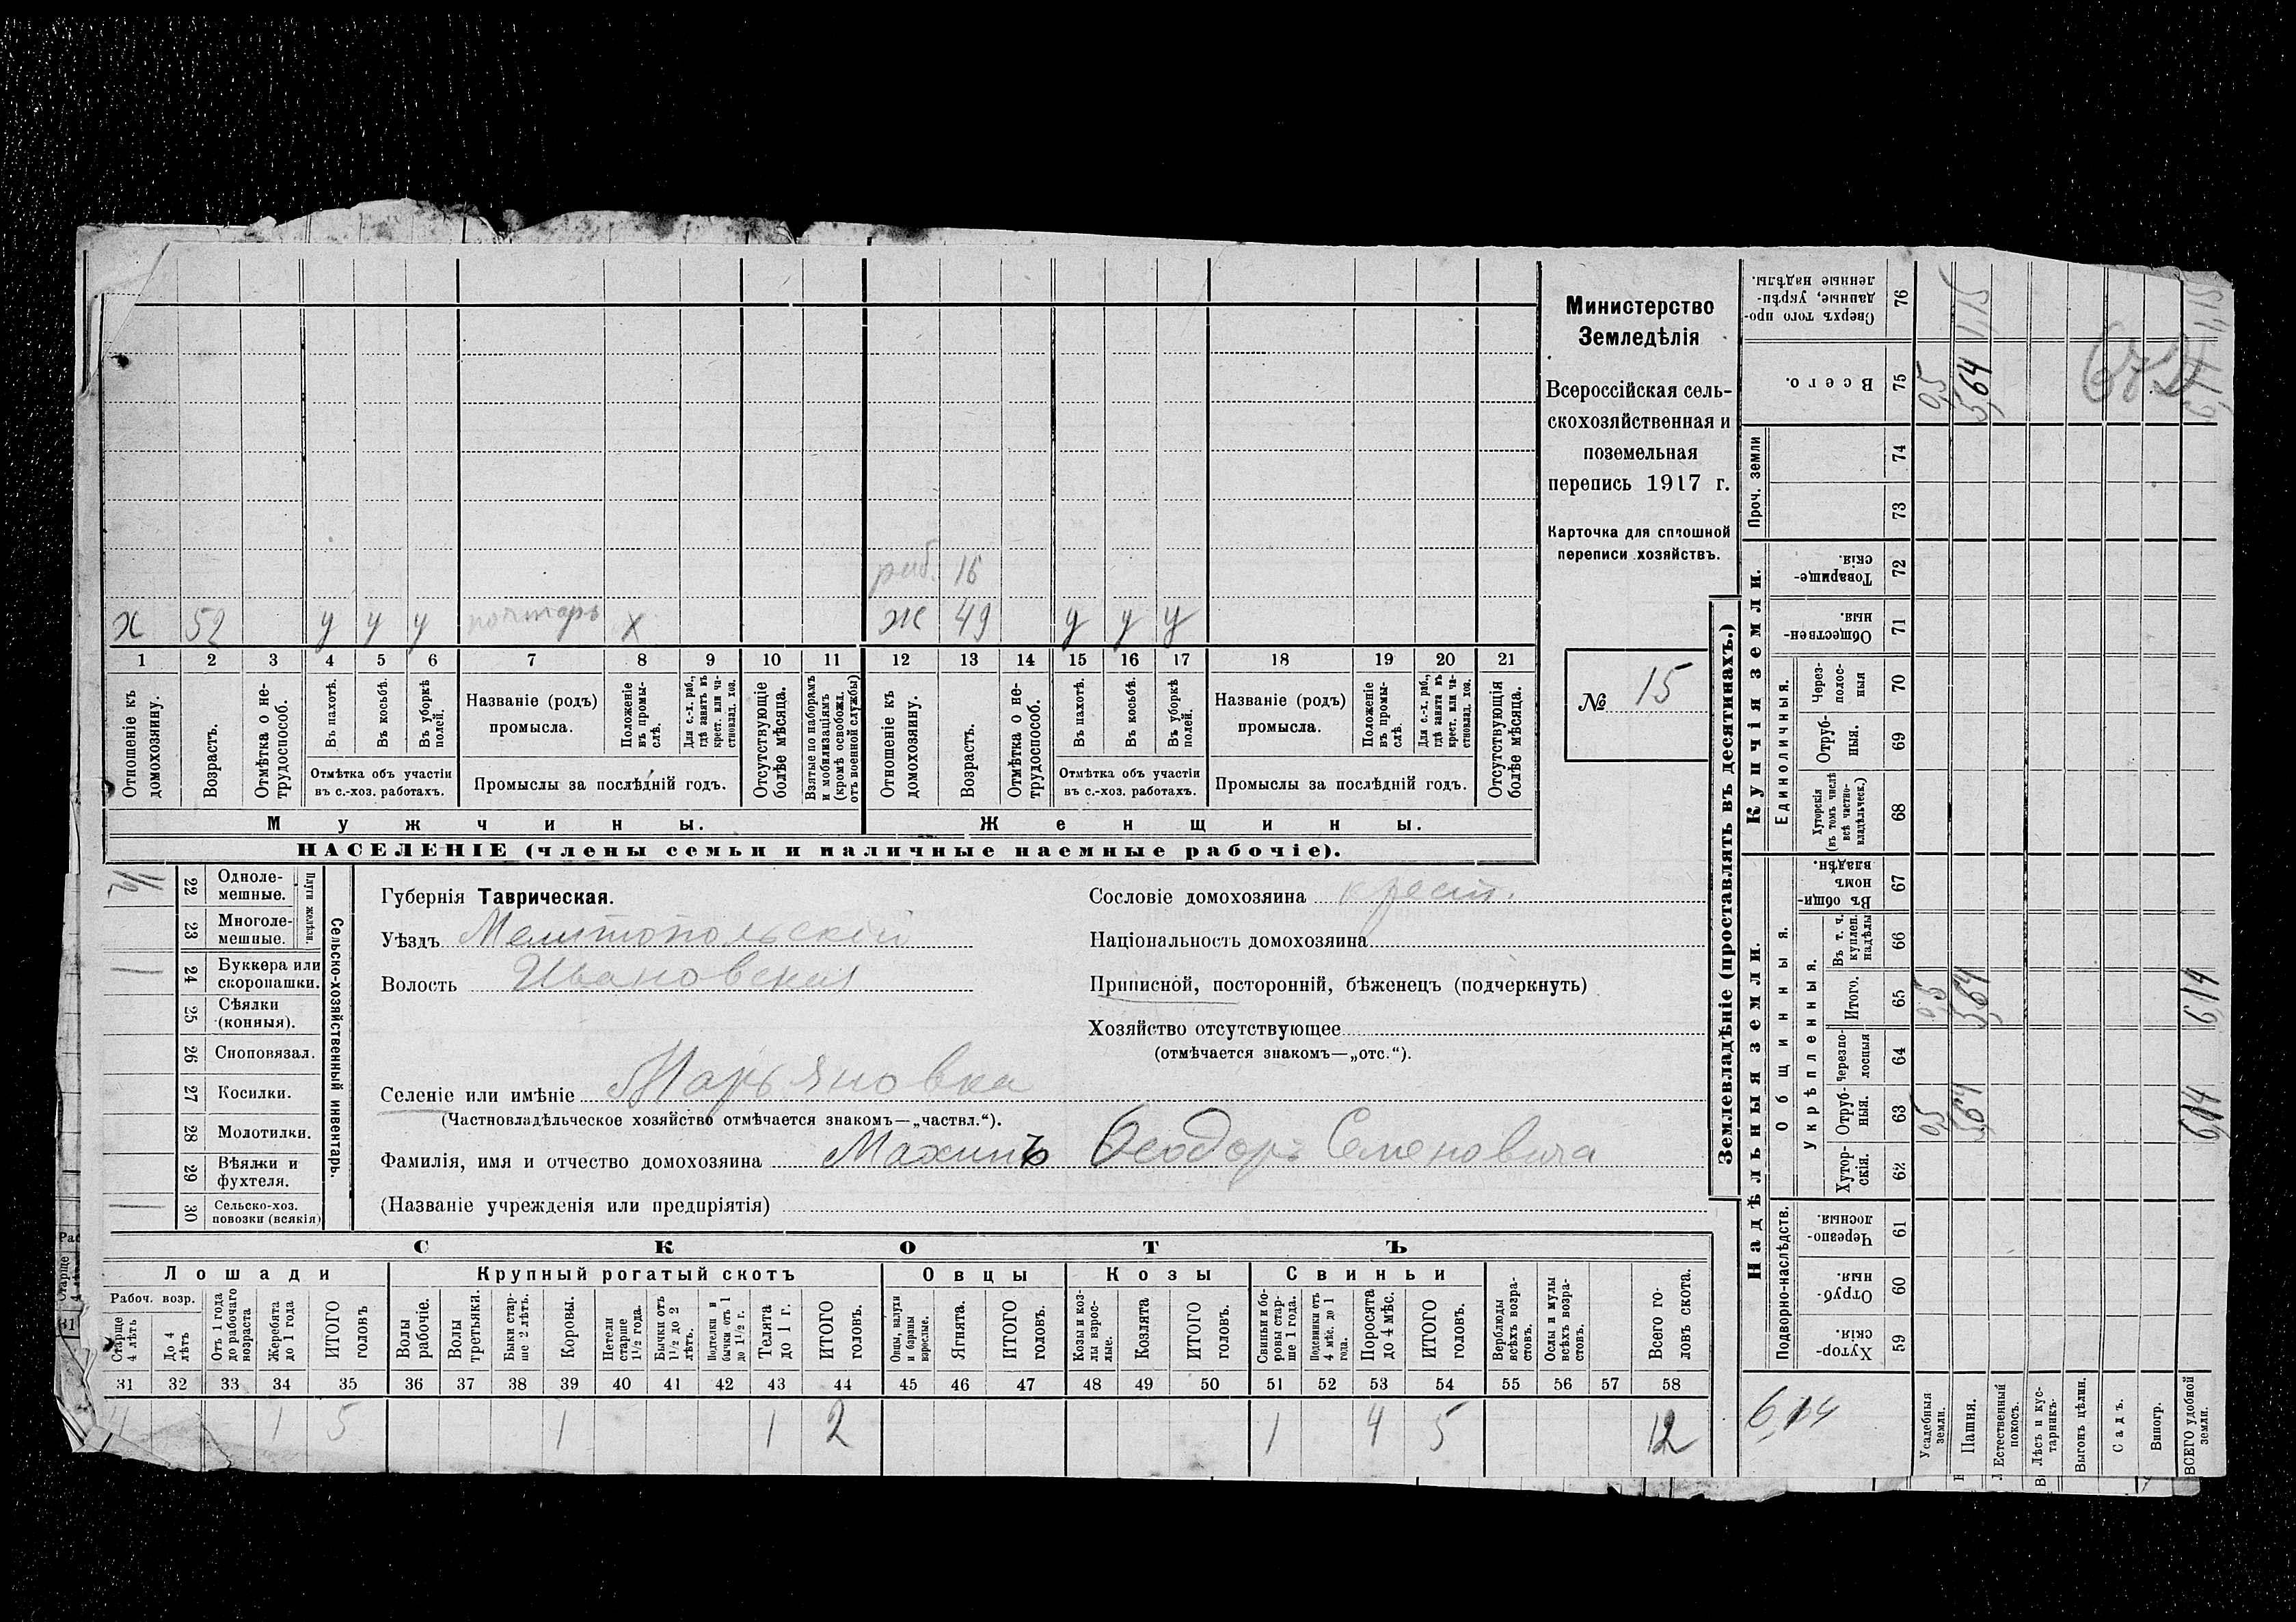 Министерство
Земледѣлія
Всероссійская сель-
скохозяйственная и
поземельная
перепись 1917 г.
Карточка для сплошной
переписи хозяйствъ.
№ 15
раб. 16
х 52 у у у х ж 49 у у у
1 2 3 4 5 6 7 8 9 10 11 12 13 14 15 16 17 18 19 20 21
Отношеніе къ домохозяину.
Возрастъ.
Отмѣтка о не-трудоспособ.
Въ пахотѣ.
Въ косьбѣ.
Въ уборкѣ полей.
Отмѣтка объ участіи
въ с.-хоз. работахъ.
Названіе (родъ)
промысла.
Положеніе въ промы-слѣ.
Для с.-х. раб., гдѣ занятъ въ крест. или ча-стновлад. хоз.
Промыслы за послѣдній годъ.
Отсутствующіе болѣе мѣсяца.
Взятые по наборамъ и мобилизаціямъ (кромѣ освобожд. отъ военной службы)
Отношеніе къ домохозяину.
Возрастъ.
Отмѣтка о не-трудоспособ.
Въ пахотѣ.
Въ косьбѣ.
Въ уборкѣ полей.
Отмѣтка объ участіи
въ с.-хоз. работахъ.
Названіе (родъ)
промысла.
Положеніе въ промы-слѣ.
Для с.-х. раб., гдѣ занята въ крест. или ча-стновлад. хоз.
Промыслы за послѣдній годъ.
Отсутствующія болѣе мѣсяца.
Мужчины. Женщины.
НАСЕЛЕНІЕ (члены семьи и наличные наемные рабочіе).
22 Одноле-мешные.
23 Многоле-мешные.
Плуги желѣзн.
24 Буккера или скоропашки.
25 Сѣялки (конныя).
26 Сноповязал.
27 Косилки.
28 Молотилки.
29 Вѣялки и фухтеля.
30 Сельско-хоз. повозки (всякія)
Сельско-хозяйственный инвентарь.
Губернія Таврическая.
Уѣздъ Мелитопольскій
Волость Ивановская
Селеніе или имѣніе Марьяновка
(Частновладѣльческое хозяйство отмѣчается знакомъ—„частвл.“).
Фамилія, имя и отчество домохозяина Махинъ Ѳеодоръ Семеновича
(Названіе учрежденія или предпріятія)
Сословіе домохозяина крест.
Національность домохозяина
Приписной, посторонній, бѣженецъ (подчеркнуть)
Хозяйство отсутствующее
(отмѣчается знакомъ—„отс.“).
СКОТЪ
Лошади Крупный рогатый скотъ Овцы Козы Свиньи
Рабоч. возр.
Старше 4 лѣтъ
До 4 лѣтъ
Отъ 1 года до рабочаго возраста
Жеребята до 1 года
ИТОГО головъ
Волы рабочіе.
Волы третьяки.
Быки стар-ше 2 лѣтъ.
Коровы.
Нетели старше 1½ года.
Бычки отъ 1½ до 2 лѣтъ.
Подтелки и бычки отъ 1 до 1½ г.
Телята до 1 г.
ИТОГО головъ.
Овцы, валухи и бараны взрослые.
Ягнята.
ИТОГО головъ.
Козы и коз-лы взрос-лые.
Козлята
ИТОГО головъ.
Свиньи и бо-ровы стар-ше 1 года.
Подсвинки отъ 4 мѣс. до 1 года.
Поросята до 4 мѣс.
ИТОГО головъ.
Верблюды всѣхъ возра-стовъ.
Ослы и мулы всѣхъ возра-стовъ.
Всего го-ловъ скота.
31 32 33 34 35 36 37 38 39 40 41 42 43 44 45 46 47 48 49 50 51 52 53 54 55 56 57 58
4 1 5 1 1 2 1 4 5 12
Землевладѣніе (проставлять въ десятинахъ.)
Надѣльныя земли. Купчія земли. Проч. земли
Подворно-наслѣдств.
Общинныя.
Укрѣпленныя.
Единоличныя.
Хутор-скія. 59
Отруб-ныя. 60
Черезпо-лосныя 61
Хутор-скія. 62
Отруб-ныя. 63
Черезпо-лосныя 64
Итого. 65
Въ т. ч. куплен. надѣлы 66
Въ общи-номъ владѣн. 67
Хуторскія (въ томъ числѣ всѣ частно-владѣльческ.) 68
Отруб-ныя. 69
Через-полос-ныя 70
Обществен-ныя. 71
Товарище-скія. 72
73
74
Всего. 75
Сверхъ того про-данные, укрѣп-ленные надѣлы. 76
6,14
Усадебныя земли. 0,5 0,5 0,5
Пашня. 5,64 5,64 5,64 1,15
Естественный покосъ.
Лѣсъ и кус-тарникъ.
Выгонъ цѣлин.
Садъ.
Виногр.
ВСЕГО удобной земли. 6,14 6,14 6,14 1,15